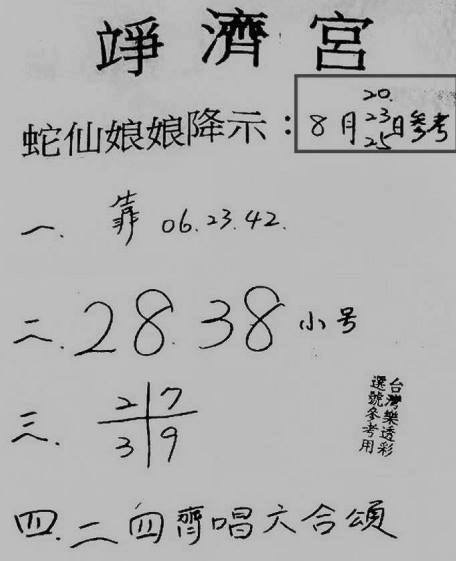 竫濟宮
蛇仙娘娘降示：
20.
8月23日參考
25
一、靠 06.23.42.
二.28.38小号
三、2 7
3 9
台灣樂透彩
選號參考用
四.二四齊唱六合頌